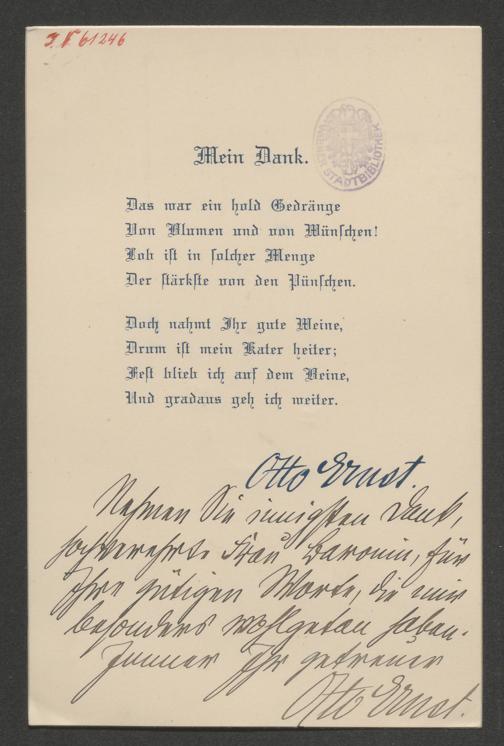 I. N. 61246
WIENER STADTBIBLIOTHEK
Mein Dank.
Das war ein hold Gedränge
Von Blumen und von Wünschen!
Lob ist in solcher Menge
Der stärkste von den Pünschen.
Doch nahmt Ihr gute Weine,
Drum ist mein Kater heiter;
Fest blieb ich auf dem Beine,
Und gradaus geh ich weiter.
Otto Ernst.
Nehmen Sie innigsten Dank,
hochverehrte Frau Baronin, für
Ihre gütigen Worte, die mir
besonders wohlgetan haben.
Immer Ihr getreuer
Otto Ernst.